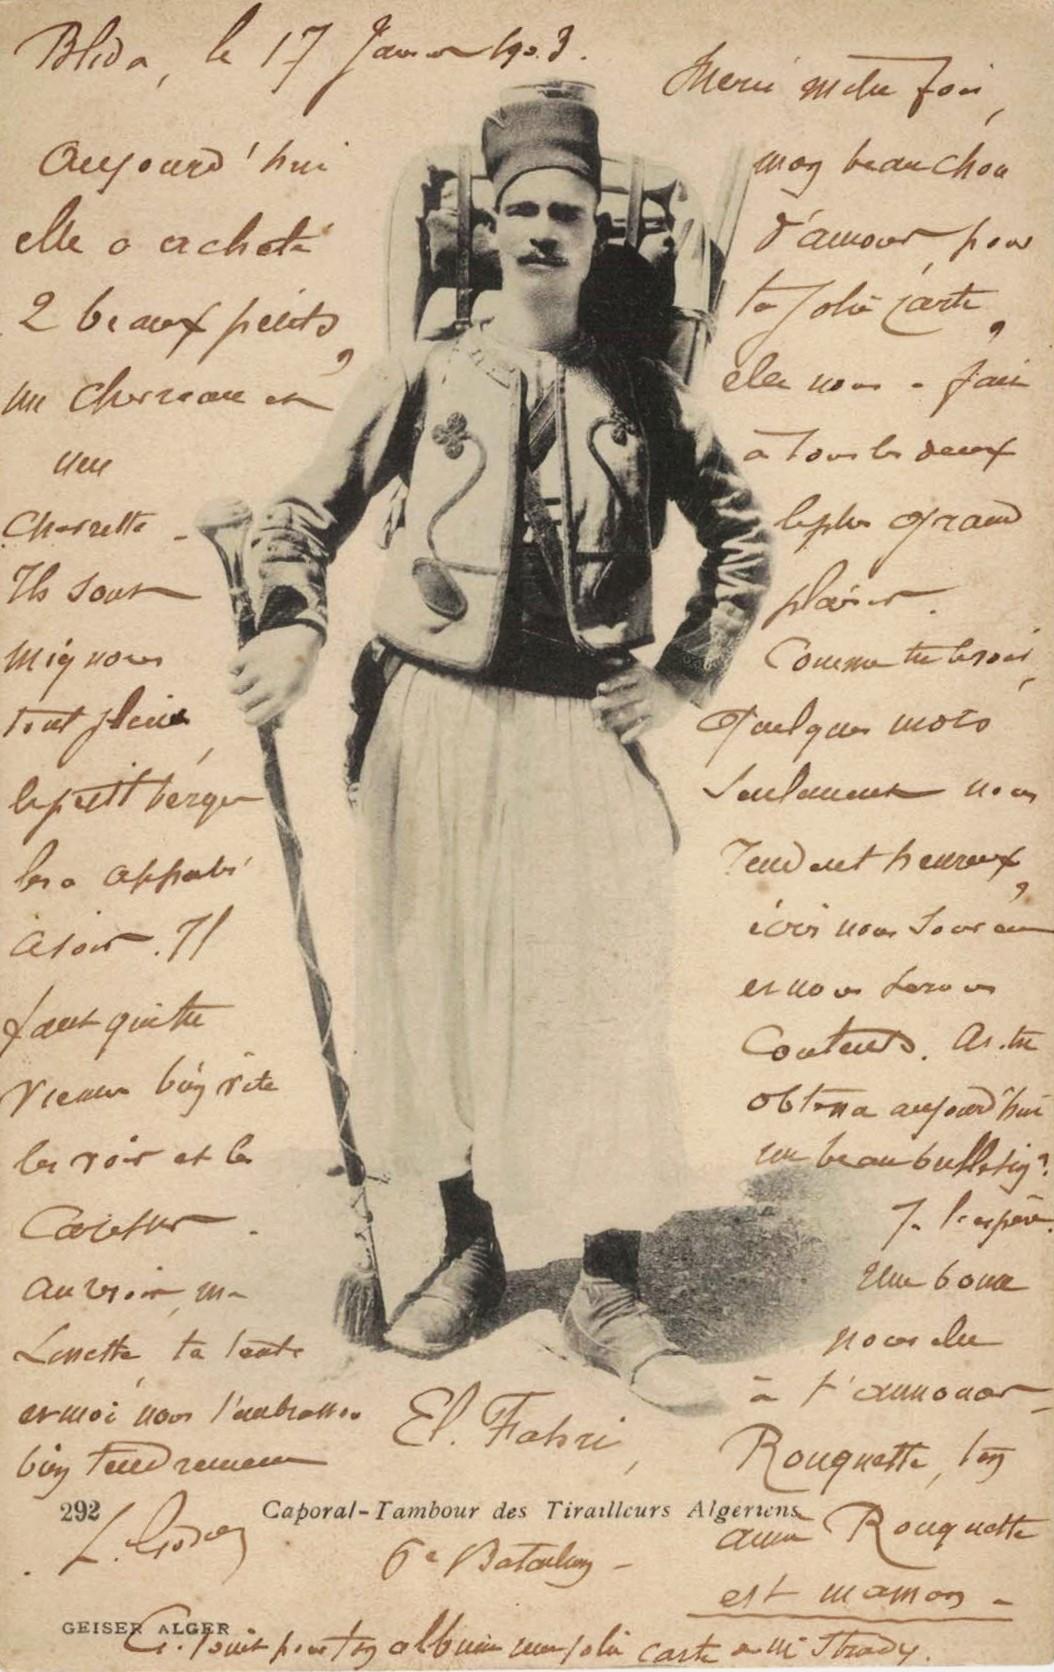 Blida, le 17 Janvier 1903.
Merci mille fois,
mon beau chou
d'amour, pour
ta jolie carte,
elle nous a fait
à tous les deux
le plus grand
plaisir.
Comme tu vois,
Quelques mots
seulement nous
rendent heureux,
écris nous souvent
et nous serons
contents. As-tu
obtenu aujourd'hui
un beau bulletin?
Je l'espère.
Une bonne
nouvelle
à t'annoncer
Rouquette, ton
amie Rouquette
est maman -
Aujourd'hui
elle a acheté
2 beaux petits,
un chevreau et
une
chevrette -
Ils sont
mignons
tout pleins,
le petit berger
les a apportés
ce soir. Il
faut que tu
viennes bien vite
les voir et les
caresser.
Au revoir, ma
Linette, ta tante
et moi nous t'embrassons
bien tendrement
El. Fahri,
292
Caporal-Tambour des Tirailleurs Algeriens
6e Bataillon -
GEISER ALGER
Ci-joint pour ton album une jolie carte